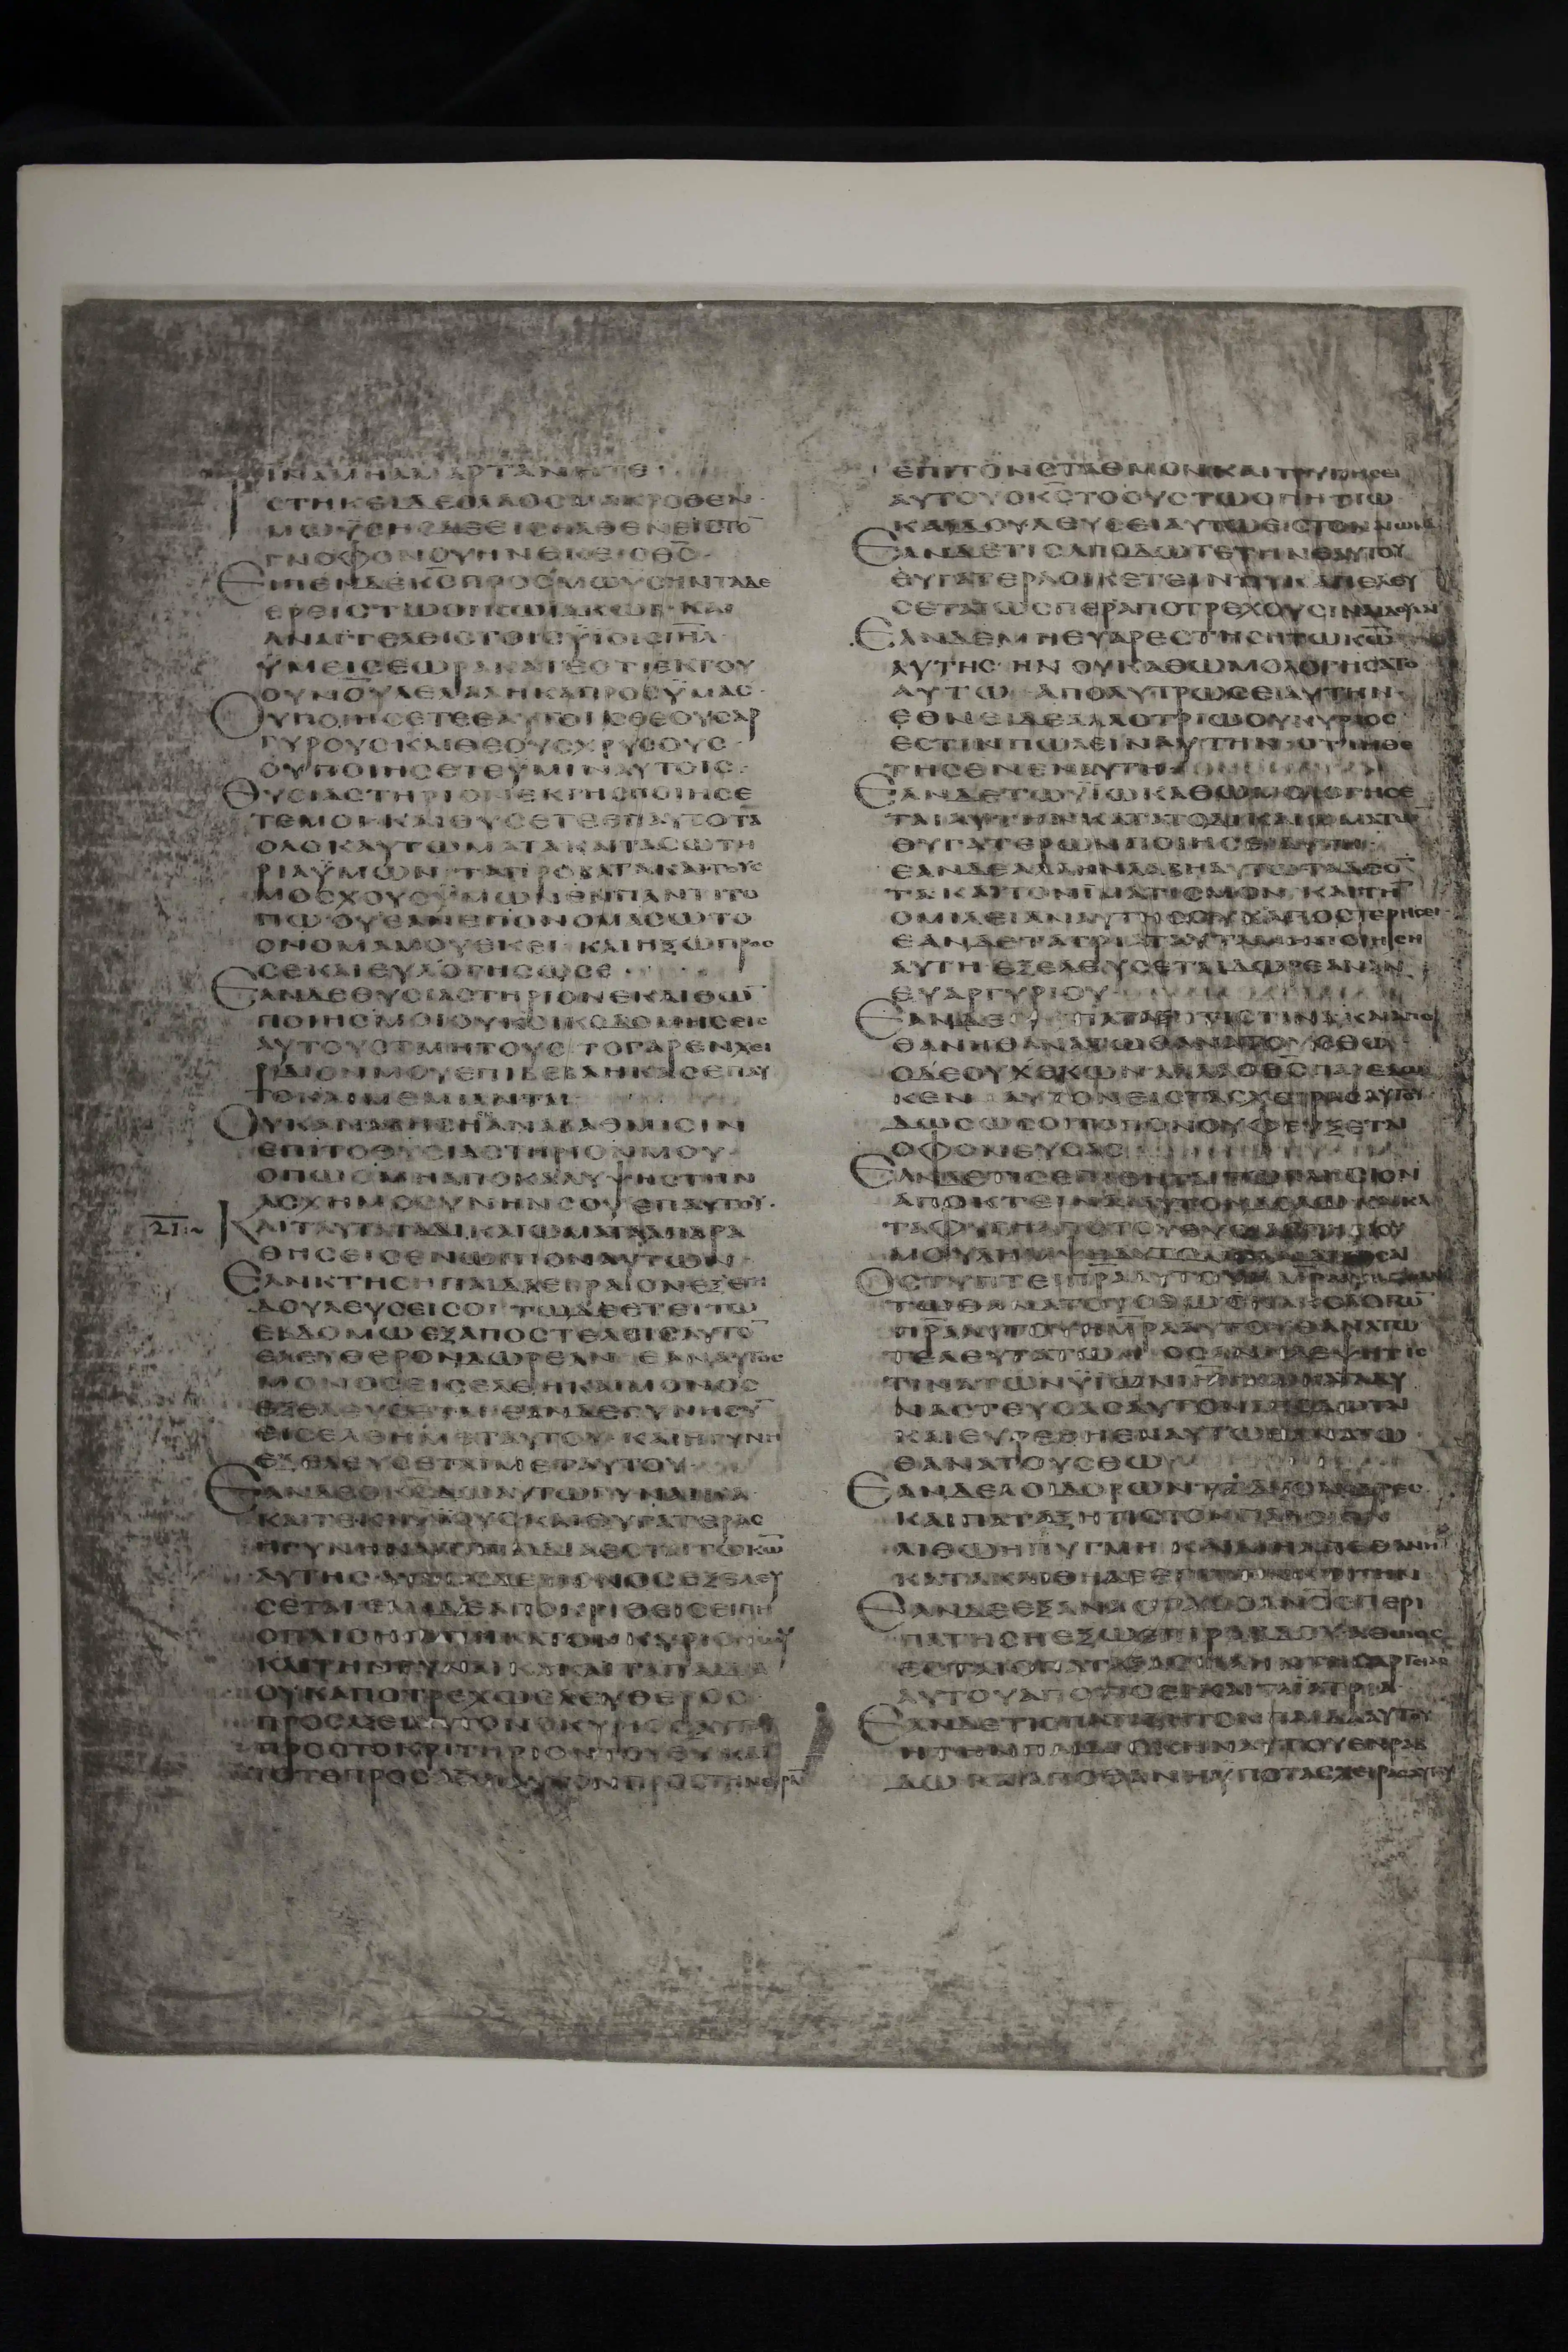 ΙΝΑΜΗΑΜΑΡΤΑΝΗΤΕ
ΙϹΤΗΚΕΙΔΕΟΛΑΟϹΜΑΚΡΟΘΕΝ
ΜΩΥϹΗϹΔΕΕΙϹΗΛΘΕΝΕΙϹΤΟ̅
ΓΝΟΦΟΝΟΥΗΝΕΚΕΙΟΘ̅Ϲ̅
ΕΙΠΕΝΔΕΚ̅Ϲ̅ΠΡΟϹΜΩΥϹΗΝΤΑΔΕ
ΕΡΕΙϹΤΩΟΙΚΩΙΑΚΩΒ ΚΑΙ
ΑΝΑΓΓΕΛΕΙϹΤΟΙϹΫΙΟΙϹΙ̅Η̅Λ̅
ΫΜΕΙϹΕΩΡΑΚΑΤΕΟΤΙΕΚΤΟΥ
ΟΥΝΟΥΛΕΛΑΛΗΚΑΠΡΟϹΫΜΑϹ
ΟΥΠΟΙΗϹΕΤΕΕΑΥΤΟΙϹΘΕΟΥϹΑΡ
ΓΥΡΟΥϹΚΑΙΘΕΟΥϹΧΡΥϹΟΥϹ
ΟΥΠΟΙΗϹΕΤΕΫΜΙΝΑΥΤΟΙϹ
ΘΥϹΙΑϹΤΗΡΙΟΝΕΚΓΗϹΠΟΙΗϹΕ
ΤΕΜΟΙ ΚΑΙΘΥϹΕΤΕΕΠΑΥΤΟΤΑ
ΟΛΟΚΑΥΤΩΜΑΤΑΚΑΙΤΑϹΩΤΗ
ΡΙΑΫΜΩΝ ΤΑΠΡΟΒΑΤΑΚΑΙΤΟΥϹ
ΜΟϹΧΟΥϹΫΜΩΝΕΝΠΑΝΤΙΤΟ
ΠΩΟΥΕΑΝΕΠΟΝΟΜΑϹΩΤΟ
ΟΝΟΜΑΜΟΥΕΚΕΙ ΚΑΙΗΞΩΠΡΟϹ
ϹΕΚΑΙΕΥΛΟΓΗϹΩϹΕ
ΕΑΝΔΕΘΥϹΙΑϹΤΗΡΙΟΝΕΚΛΙΘΩ̅
ΠΟΙΗϹΜΟΙΟΥΚΟΙΚΟΔΟΜΗϹΕΙϹ
ΑΥΤΟΥϹΤΜΗΤΟΥϹ ΤΟΓΑΡΕΝΧΕΙ
ΡΙΔΙΟΝΜΟΥΕΠΙΒΕΒΛΗΚΑϹΕΠΑΥ
ΤΟΚΑΙΜΕΜΙΑΝΤΑΙ
ΟΥΚΑΝΑΒΗϹΗΑΝΑΒΑΘΜΙϹΙΝ
ΕΠΙΤΟΘΥϹΙΑϹΤΗΡΙΟΝΜΟΥ
ΟΠΩϹΜΗΑΠΟΚΑΛΥΨΗϹΤΗΝ
ΑϹΧΗΜΟϹΥΝΗΝϹΟΥΕΠΑΥΤΟΥ
21 ΚΑΙΤΑΥΤΑΤΑΔΙΚΑΙΩΜΑΤΑΑΠΑΡΑ
ΘΗϹΕΙϹΕΝΩΠΙΟΝΑΥΤΩΝ
ΕΑΝΚΤΗϹΗΠΑΙΔΑΕΒΡΑΙΟΝΕΞΕΤΗ
ΔΟΥΛΕΥϹΕΙϹΟΙ ΤΩΔΕΕΤΕΙΤΩ
ΕΒΔΟΜΩΕΞΑΠΟϹΤΕΛΕΙϹΑΥΤΟ̅
ΕΛΕΥΘΕΡΟΝΔΩΡΕΑΝ ΕΑΝΑΥΤΟϹ
ΜΟΝΟϹΕΙϹΕΛΘΗΚΑΙΜΟΝΟϹ
ΕΞΕΛΕΥϹΕΤΑΙ ΕΑΝΔΕΓΥΝΗϹΥ̅
ΕΙϹΕΛΘΗΜΕΤΑΥΤΟΥ ΚΑΙΗΓΥΝΗ
ΕΞΕΛΕΥϹΕΤΑΙΜΕΤΑΥΤΟΥ
ΕΑΝΔΕΟΚ̅Ϲ̅ΔΩΑΥΤΩΓΥΝΑΙΚΑ
ΚΑΙΤΕΚΗ ΚΑΙΘΥΓΑΤΕΡΑϹ
ΗΓΥΝΗΚΑΙΤΑΠΑΙΔΙΑΕϹΤΑΙΤΩΚ̅Ω̅
ΑΥΤΗϹ ΑΥΤΟϹΔΕΜΟΝΟϹΕΞΕΛΕΥ
ϹΕΤΑΙ ΑΠΟΚΡΙΘΕΙϹΕΙΠΗ
ΟΠΑΙϹΗΓΑΠΗΚΑΤΟΝΚΥΡΙΟΝΜΟΥ
ΚΑΙΤΗΝΓΥΝΑΙΚΑΚΑΙΤΑΠΑΙΔΙΑ
ΟΥΚΑΠΟΤΡΕΧΩΕΛΕΥΘΕΡΟϹ
ΠΡΟϹΑΞΕΙΑΥΤΟΝΟΚΥΡΙΟϹΑΥΤΟΥ
ΠΡΟϹΤΟΚΡΙΤΗΡΙΟΝΤΟΥΘ̅Υ̅ΚΑΙ
ΤΟΤΕΠΡΟϹΑΞΕΙΑΥΤΟΝΠΡΟϹΤΗΝΘΥΡΑ̅
ΕΠΙΤΟΝϹΤΑΘΜΟΝΚΑΙΤΡΥΠΗϹΕΙ
ΑΥΤΟΥΟΚ̅Ϲ̅ΤΟΟΥϹΤΩΟΠΗΤΙΩ
ΚΑΙΔΟΥΛΕΥϹΕΙΑΥΤΩΕΙϹΤΟΝΑΙΩΝΑ
ΕΑΝΔΕΤΙϹΑΠΟΔΩΤΕΤΗΝΕΑΥΤΟΥ
ΘΥΓΑΤΕΡΑΟΙΚΕΤΕΙΝΟΥΚΑΠΕΛΕΥ
ϹΕΤΑΙΩϹΠΕΡΑΠΟΤΡΕΧΟΥϹΙΝΑΙΔΟΥΛΑΙ
ΕΑΝΔΕΜΗΕΥΑΡΕϹΤΗϹΗΤΩΚ̅Ω̅
ΑΥΤΗϹ ΗΝ ΟΥΚΑΘΩΜΟΛΟΓΗϹΑΤΟ
ΑΥΤΩ ΑΠΟΛΥΤΡΩϹΕΙΑΥΤΗΝ
ΕΘΝΕΙΔΕΑΛΛΟΤΡΙΩΟΥΚΥΡΙΟϹ
ΕϹΤΙΝΠΩΛΕΙΝΑΥΤΗΝ ΟΤΙΗΘΕ
ΤΗϹΕΝΕΝΑΥΤΗ
ΕΑΝΔΕΤΩΫΙΩΚΑΘΩΜΟΛΟΓΗϹΕ
ΤΑΙΑΥΤΗΝΚΑΤΑΤΟΔΙΚΑΙΩΜΑΤΩ̅
ΘΥΓΑΤΕΡΩΝΠΟΙΗϹΕΙΑΥΤΗ
ΕΑΝΔΕΑΛΛΗΝΛΑΒΗΑΥΤΩΤΑΔΕΟ̅
ΤΑΚΑΙΤΟΝΙΜΑΤΙϹΜΟΝ ΚΑΙΤΗ̅
ΟΜΙΛΕΙΑΝΑΥΤΗϹΟΥΚΑΠΟϹΤΕΡΗϹΕΙ
ΕΑΝΔΕΤΑΤΡΙΑΤΑΥΤΑΜΗΠΟΙΗϹΗ
ΑΥΤΗ ΕΞΕΛΕΥϹΕΤΑΙΔΩΡΕΑΝΑΝ
ΕΥΑΡΓΥΡΙΟΥ
ΕΑΝΔΕ ΠΑΤΑΞΗΤΙϹΤΙΝΑΚΑΙΑΠΟ
ΘΑΝΗΘΑΝΑΤΩΘΑΝΑΤΟΥϹΘΩ
ΟΔΕΟΥΧΕΚΩΝΑΛΛΑΟΘ̅Ϲ̅ΠΑΡΕΔΩ
ΚΕΝ ΑΥΤΟΝΕΙϹΤΑϹΧΕΙΡΑϹΑΥΤΟΥ
ΔΩϹΩϹΟΙΤΟΠΟΝΟΥΦΕΥΞΕΤΑΙ
ΟΦΟΝΕΥϹΑϹ
ΕΑΝΔΕΤΙϹΕΠΙΘΗΤΑΙΤΩΠΛΗϹΙΟΝ
ΑΠΟΚΤΕΙΝΑΙΑΥΤΟΝΔΟΛΩΚΑΙΚΑ
ΤΑΦΥΓΗΑΠΟΤΟΥΘΥϹΙΑϹΤΗΡΙΟΥ
ΟϹΤΥΠΤΕΙΠ̅Ρ̅ΑΑΥΤΟΥ
ΤΕΛΕΥΤΑΤΩ
ΚΑΙΕΥΡΕΘΗΕΝΑΥΤΩΘΑΝΑΤΩ
ΘΑΝΑΤΟΥϹΘΩ
ΕΑΝΔΕΛΟΙΔΟΡΩΝΤΑΙΔΥΟΑΝΔΡΕϹ
ΚΑΙΠΑΤΑΞΗΤΙϹΤΟΝΠΛΗϹΙΟΝ
ΛΙΘΩΗΠΥΓΜΗ ΚΑΙΜΗΑΠΟΘΑΝΗ
ΚΑΤΑΚΛΙΘΗΔΕΕΠΙΤΗΝΚΟΙΤΗΝ
ΕΑΝΔΕΕΞΑΝΑϹΤΑϹΟΑΝΟϹΠΕΡΙ
ΠΑΤΗϹΗΕΞΩΕΠΙΡΑΒΔΟΥΑΘΩΙΟϹ
ΑΥΤΟΥΑΠΟΤΙϹΕΙΚΑΙΤΑΙΑΤΡΙΑ
ΕΑΝΔΕΤΙϹΠΑΤΑΞΗΤΟΝΠΑΙΔΑΑΥΤΟΥ
ΗΤΗΝΠΑΙΔΙϹΚΗΝΑΥΤΟΥΕΝΡΑΒ
ΔΩ ΚΑΙΑΠΟΘΑΝΗΥΠΟΤΑϹΧΕΙΡΑϹΑΥΤΟΥ